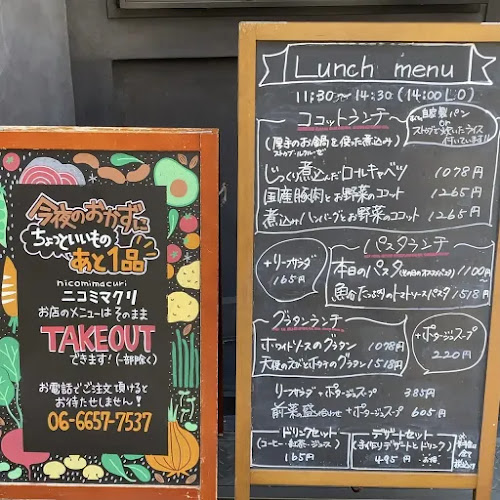 今夜のおかずに
ちょっといいもの
あと1品
nicomimacuri
ニコミマクリ
お店のメニューはそのまま
TAKEOUT
できます!(一部除く)
お電話でご注文頂けると
お待たせしません!
06-6657-7537
Lunch menu
11:30〜14:30(14:00 L.O)
ココットランチ
自家製パン
or
ストウブで炊いたライス
付いています!!
(厚手のお鍋を使った煮込み)
じっくり煮込んだロールキャベツ 1078円
国産豚肉とお野菜のココット 1265円
煮込みハンバーグとお野菜のココット 1265円
+リーフサラダ
165円
パスタランチ
本日のパスタ 1100円〜
魚介たっぷりのトマトソースパスタ 1518円
グラタンランチ
ホワイトソースのグラタン 1078円
天使のエビとホタテのグラタン 1518円
+ポタージュスープ
220円
リーフサラダ+ポタージュスープ 385円
前菜の盛り合わせ+ポタージュスープ 605円
ドリンクセット
(コーヒー・紅茶・ジュース)
165円
デザートセット
(手作りデザートとドリンク)
495円